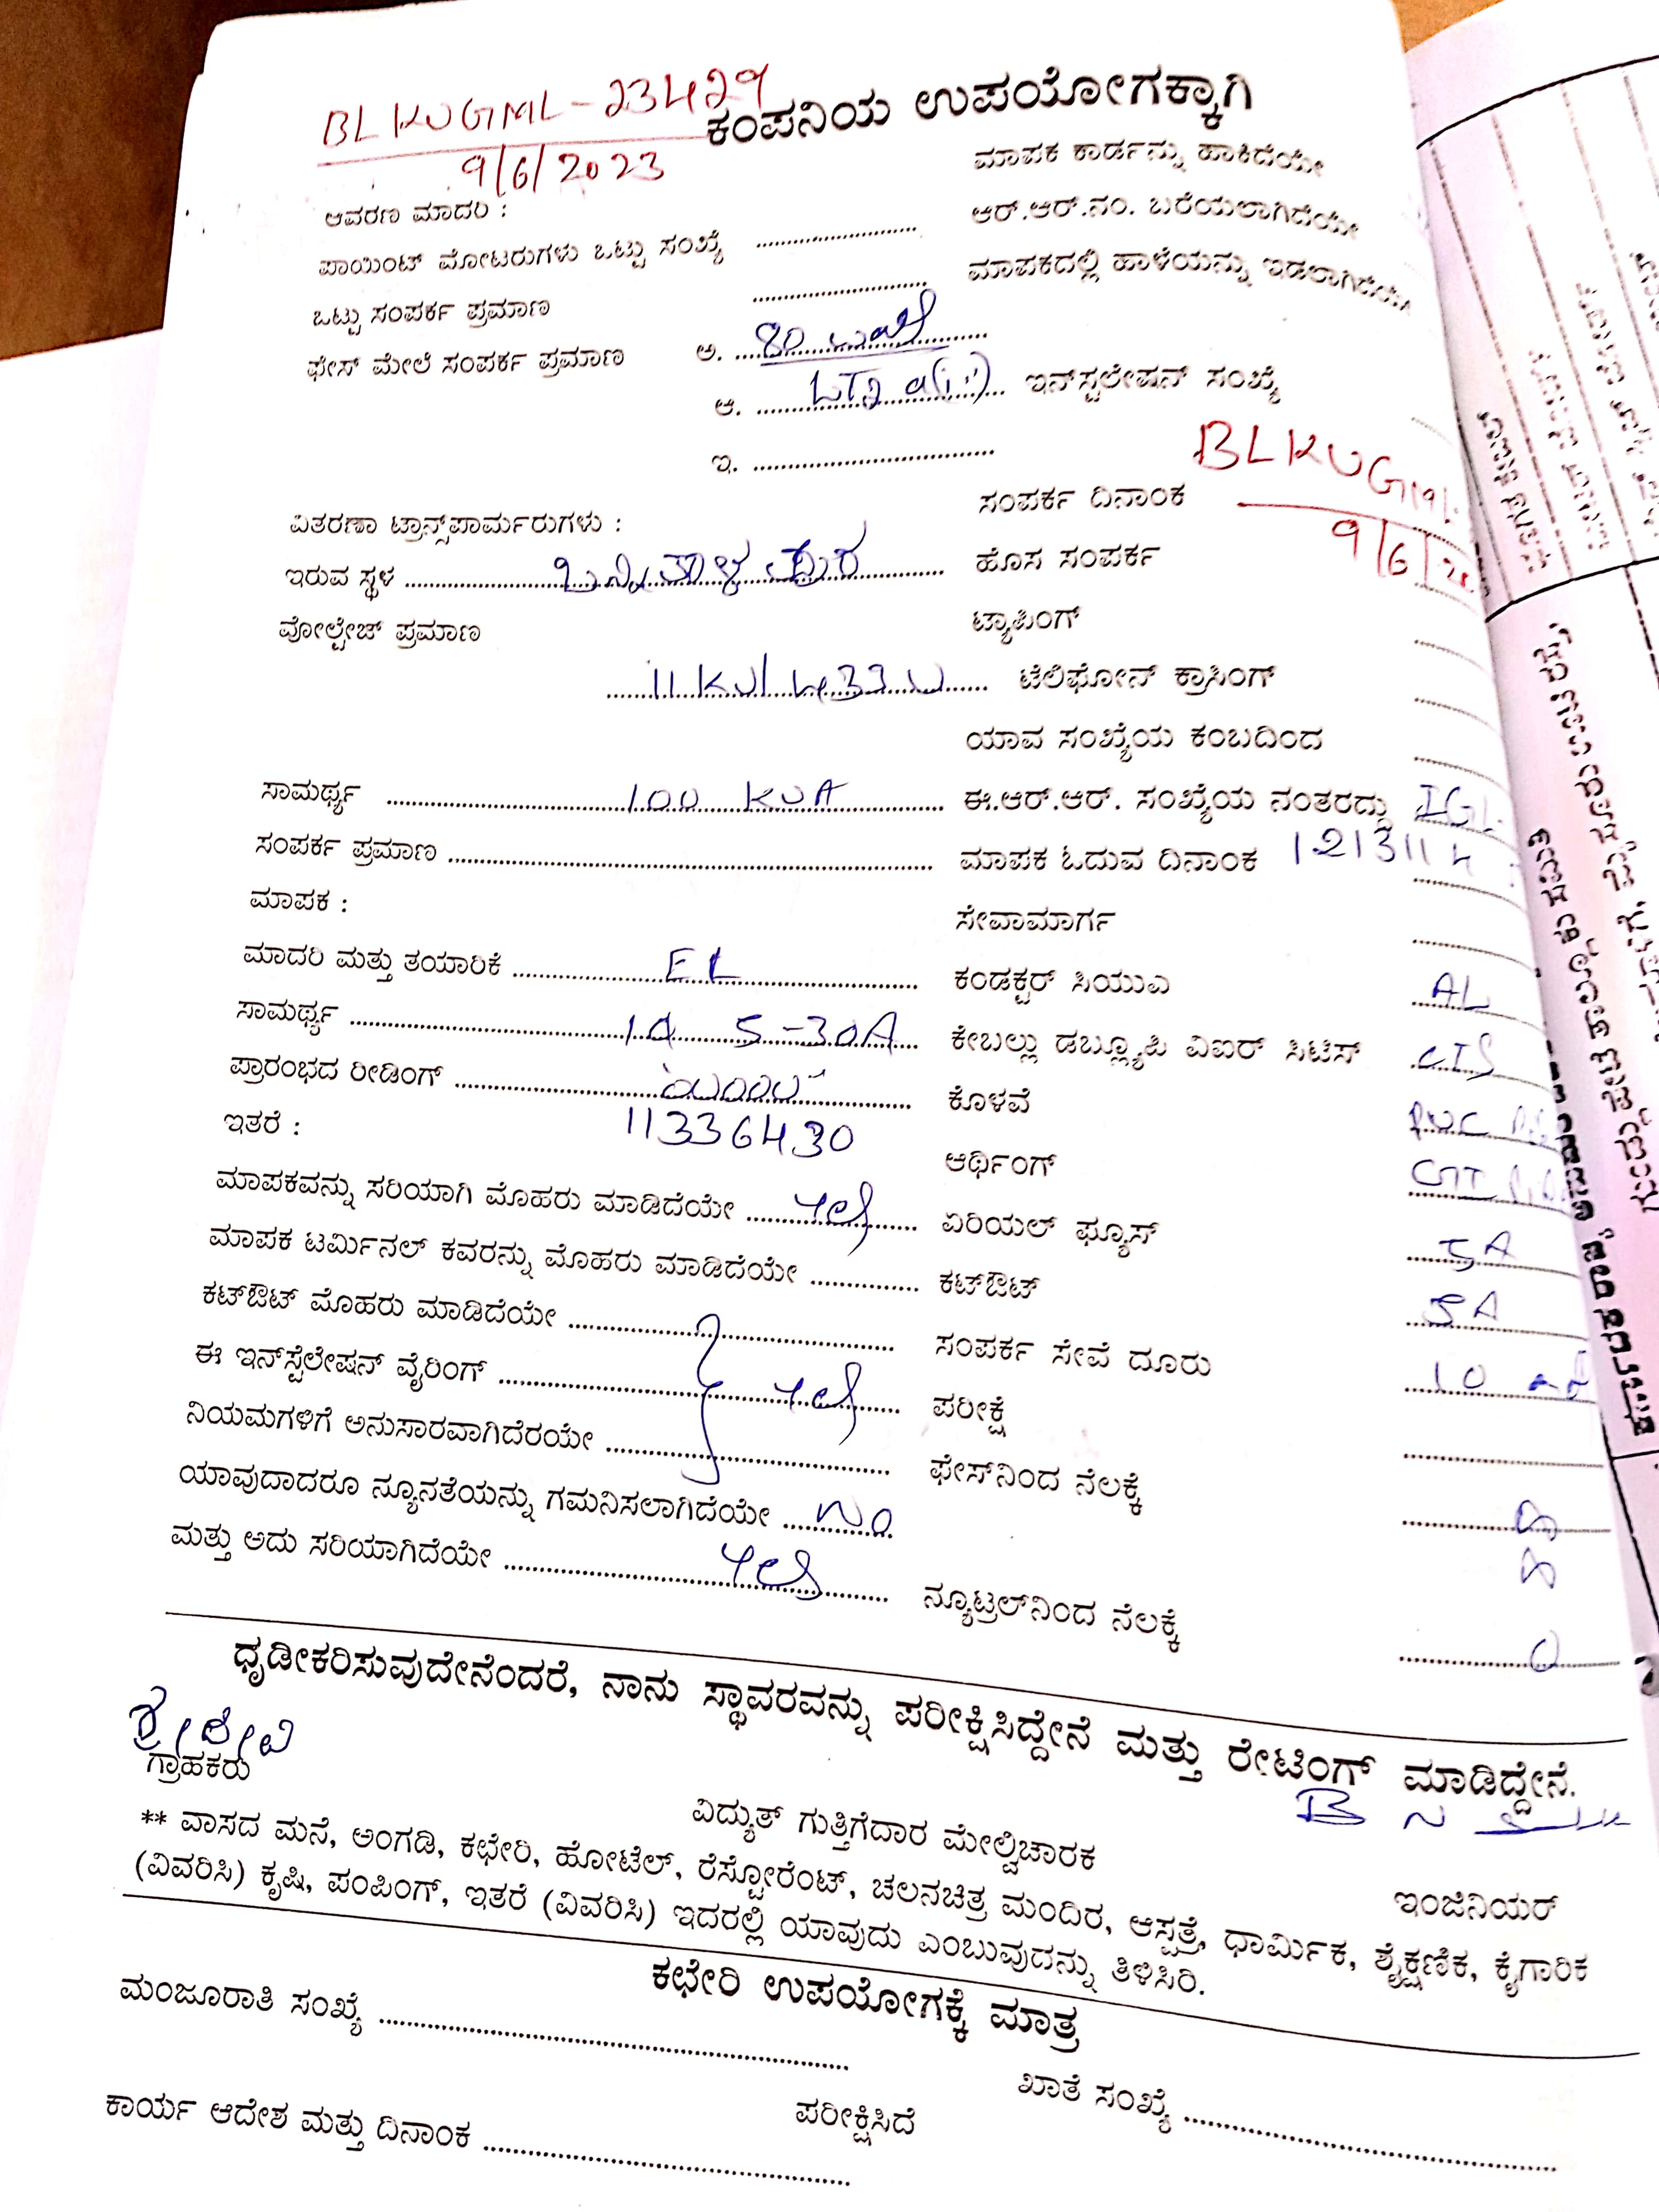 BLKUGML-23429
9/6/2023
ಕಂಪನಿಯ ಉಪಯೋಗಕ್ಕಾಗಿ
ಮಾಪಕ ಕಾರ್ಡನ್ನು ಹಾಕಿದೆಯೇ
ಆವರಣ ಮಾದರಿ :
ಆರ್.ಆರ್.ನಂ. ಬರೆಯಲಾಗಿದೆಯೇ
ಪಾಯಿಂಟ್ ಮೋಟರುಗಳು ಒಟ್ಟು ಸಂಖ್ಯೆ
ಮಾಪಕದಲ್ಲಿ ಹಾಳೆಯನ್ನು ಇಡಲಾಗಿದೆಯೇ
ಒಟ್ಟು ಸಂಪರ್ಕ ಪ್ರಮಾಣ
ಫೇಸ್ ಮೇಲೆ ಸಂಪರ್ಕ ಪ್ರಮಾಣ ಅ. 80
ಆ. LT2 a(ii) ಇನ್‌ಸ್ಟಲೇಷನ್ ಸಂಖ್ಯೆ
ಇ.
BLKUGML
ಸಂಪರ್ಕ ದಿನಾಂಕ 9/6/23
ವಿತರಣಾ ಟ್ರಾನ್ಸ್‌ಪಾರ್ಮರುಗಳು :
ಇರುವ ಸ್ಥಳ ಹೊಸ ಸಂಪರ್ಕ
ವೋಲ್ಟೇಜ್ ಪ್ರಮಾಣ ಟ್ಯಾಪಿಂಗ್
11KV/433V ಟೆಲಿಫೋನ್ ಕ್ರಾಸಿಂಗ್
ಯಾವ ಸಂಖ್ಯೆಯ ಕಂಬದಿಂದ
ಸಾಮರ್ಥ್ಯ 100 KVA ಈ.ಆರ್.ಆರ್. ಸಂಖ್ಯೆಯ ನಂತರದ್ದು IGL
ಸಂಪರ್ಕ ಪ್ರಮಾಣ ಮಾಪಕ ಓದುವ ದಿನಾಂಕ
ಮಾಪಕ : ಸೇವಾಮಾರ್ಗ
ಮಾದರಿ ಮತ್ತು ತಯಾರಿಕೆ EL ಕಂಡಕ್ಟರ್ ಸಿಯುಎ AL
ಸಾಮರ್ಥ್ಯ 1Ø 5-30A ಕೇಬಲ್ಲು ಡಬ್ಲ್ಯೂಪಿ ಎಐರ್ ಸಿಟಿಸ್ CTS
ಪ್ರಾರಂಭದ ರೀಡಿಂಗ್ 00000 ಕೊಳವೆ PVC
ಇತರೆ : 11336430 ಆರ್ಥಿಂಗ್ GI
ಮಾಪಕವನ್ನು ಸರಿಯಾಗಿ ಮೊಹರು ಮಾಡಿದೆಯೇ yes ಏರಿಯಲ್ ಫ್ಯೂಸ್ 5A
ಮಾಪಕ ಟರ್ಮಿನಲ್ ಕವರನ್ನು ಮೊಹರು ಮಾಡಿದೆಯೇ ಕಟ್‌ಔಟ್ 5A
ಕಟ್‌ಔಟ್ ಮೊಹರು ಮಾಡಿದೆಯೇ ಸಂಪರ್ಕ ಸೇವೆ ದೂರು 10
ಈ ಇನ್‌ಸ್ಪೆಲೇಷನ್ ವೈರಿಂಗ್ yes ಪರೀಕ್ಷೆ
ನಿಯಮಗಳಿಗೆ ಅನುಸಾರವಾಗಿದೆರಯೇ ಫೇಸ್‌ನಿಂದ ನೆಲಕ್ಕೆ
ಯಾವುದಾದರೂ ನ್ಯೂನತೆಯನ್ನು ಗಮನಿಸಲಾಗಿದೆಯೇ No
ಮತ್ತು ಅದು ಸರಿಯಾಗಿದೆಯೇ yes ನ್ಯೂಟ್ರಲ್‌ನಿಂದ ನೆಲಕ್ಕೆ 0
ಧೃಡೀಕರಿಸುವುದೇನೆಂದರೆ, ನಾನು ಸ್ಥಾವರವನ್ನು ಪರೀಕ್ಷಿಸಿದ್ದೇನೆ ಮತ್ತು ರೇಟಿಂಗ್ ಮಾಡಿದ್ದೇನೆ.
ಶ್ರೀದೇವಿ
ಗ್ರಾಹಕರು ವಿದ್ಯುತ್ ಗುತ್ತಿಗೆದಾರ ಮೇಲ್ವಿಚಾರಕ ಇಂಜಿನಿಯರ್
** ವಾಸದ ಮನೆ, ಅಂಗಡಿ, ಕಛೇರಿ, ಹೋಟೆಲ್, ರೆಸ್ಟೋರೆಂಟ್, ಚಲನಚಿತ್ರ ಮಂದಿರ, ಆಸ್ಪತ್ರೆ, ಧಾರ್ಮಿಕ, ಶೈಕ್ಷಣಿಕ, ಕೈಗಾರಿಕ
(ವಿವರಿಸಿ) ಕೃಷಿ, ಪಂಪಿಂಗ್, ಇತರೆ (ವಿವರಿಸಿ) ಇದರಲ್ಲಿ ಯಾವುದು ಎಂಬುವುದನ್ನು ತಿಳಿಸಿರಿ.
ಕಛೇರಿ ಉಪಯೋಗಕ್ಕೆ ಮಾತ್ರ
ಮಂಜೂರಾತಿ ಸಂಖ್ಯೆ ಖಾತೆ ಸಂಖ್ಯೆ
ಕಾರ್ಯ ಆದೇಶ ಮತ್ತು ದಿನಾಂಕ ಪರೀಕ್ಷಿಸಿದೆ